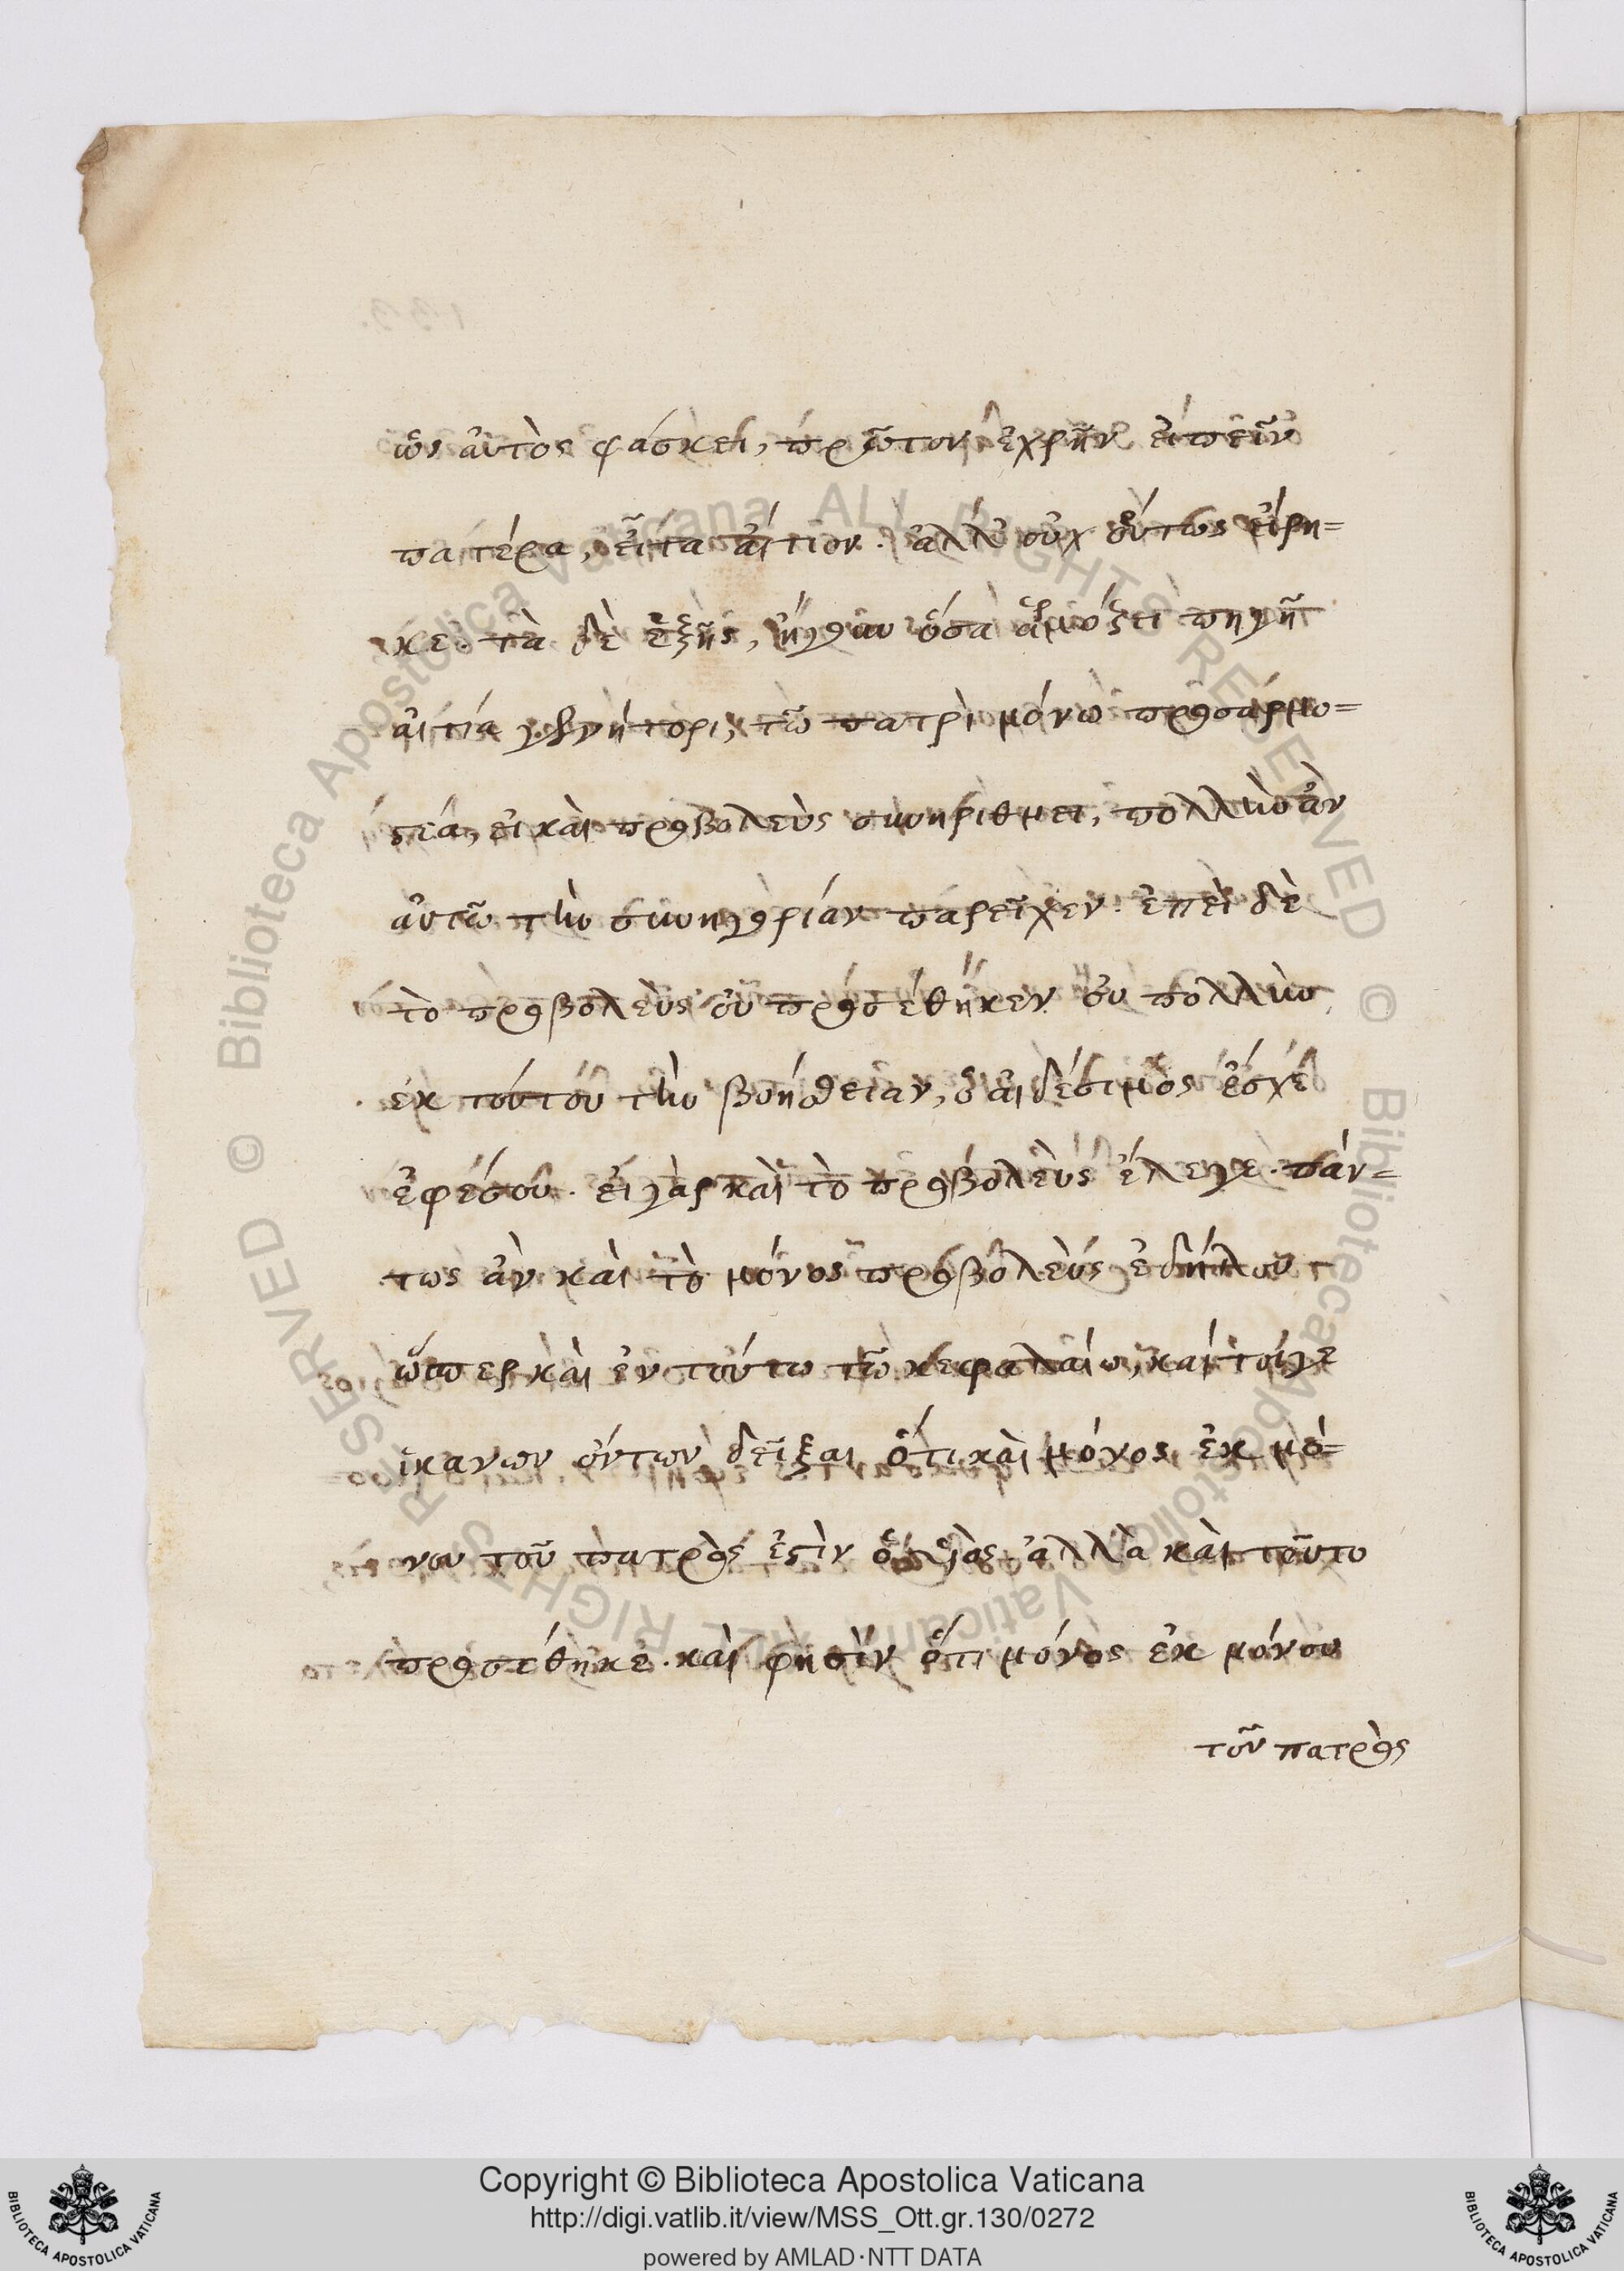 ὡς αὐτὸς φάσκει, πρῶτον ἐχρῆν εἰπεῖν
πατέρα, εἶτα αἴτιον. ἀλλ' οὐχ οὕτως εἴρη=
κε. τὰ δὲ ἑξῆς, ἤγουν ὅσα ἁρμόζει πηγῇ
αἰτία γεννήτορι, τῶ πατρὶ μόνω προσαρμο=
στέα, εἰ καὶ προβολεὺς συνηρίθμει, πολλὴν ἂν
αὐτῶ τὴν συνηγορίαν παρεῖχεν. ἐπεὶ δὲ
τὸ προβολεὺς οὐ προσέθηκεν οὐ πολλὴν
ἐκ τούτου τὴν βοήθειαν, ὁ αἰδέσιμος ἔσχε
ἐφέσου. εἰ γὰρ καὶ τὸ προβολεὺς ἔλεγε. πάν=
τως ἂν καὶ τὸ μόνος προβολεὺς ἐδήλου
ὥσπερ καὶ ἐν τούτω τῶ κεφαλαίω, καί τοίγε
ἱκανων ὄντων δεῖξαι ὅτι καὶ μόνος ἐκ μό=
νου τοῦ πατρός ἐστὶν ὁ υἱὸς ἀλλὰ καὶ τοῦτο
προστέθηκε. καὶ φησὶν ὅτι μόνος ἐκ μόνου
τοῦ πατρὸς
© Biblioteca Apostolica Vaticana ALL RIGHTS RESERVED © Biblioteca Apostolica Vaticana ALL RIGHTS RESERVED
Copyright © Biblioteca Apostolica Vaticana
http://digi.vatlib.it/view/MSS_Ott.gr.130/0272
powered by AMLAD·NTT DATA
BIBLIOTECA APOSTOLICA VATICANA
BIBLIOTECA APOSTOLICA VATICANA